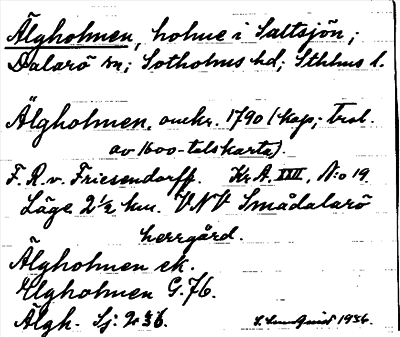 Älgholmen, holme i Saltsjön;
Dalarö sn; Sotholms hd; Sthlms l.
Älgholmen, omkr. 1790 (kop; trol.
av 1600-talskarta).
F. R. v. Friesendorff. Kr. A. XXII, N:o 19.
Läge 2½ km. VNV Smådalarö
herrgård.
Älgholmen ek.
Elgholmen G. 76.
Älgh. Sj:
1936.